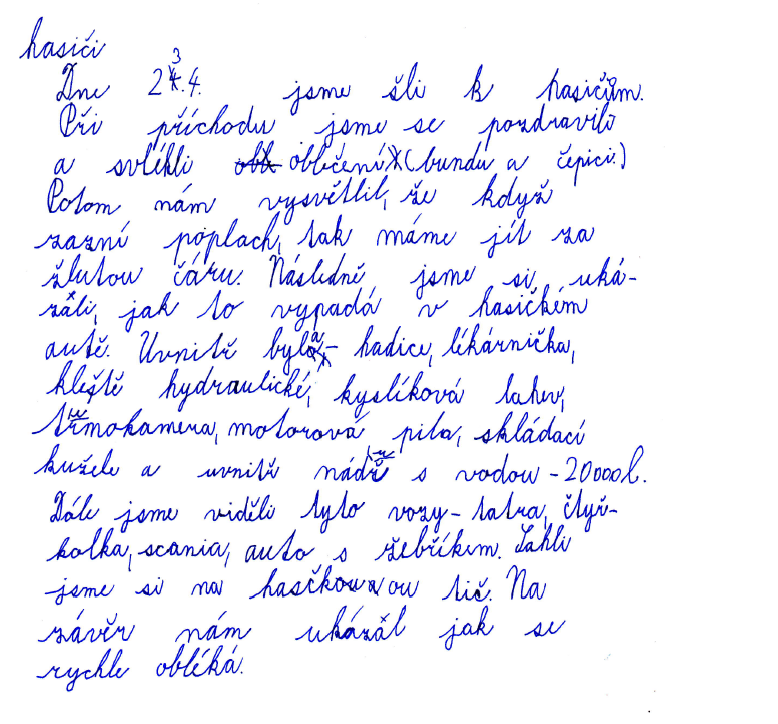 hasiči
Dne 23.4. jsme šli k hasičům.
Při příchodu jsme se pozdravili
a svlékli oblečení (bundu a čepici.)
Potom nám vysvětlil, že když
zazní poplach, tak máme jít za
žlutou čáru. Následně jsme si uká-
záli, jak to vypadá v hasičkém
autě. Uvnitř byla - hadice, lékárnička,
kleště hydraulické, kyslíková lahev,
termokamera, motorová pila, skládací
kužele a uvnitř nádrž s vodou - 20000l.
Dále jsme viděli tyto vozy - tatra, čtyř-
kolka, scania, auto s žebříkem. Sahli
jsme si na hasčkou ou tič. Na
závěr nám ukázál jak se
rychle obléká.